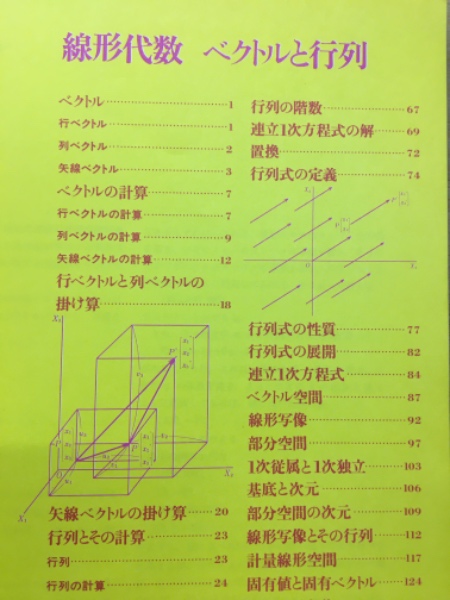 線形代数 ベクトルと行列
ベクトル 1
行ベクトル 1
列ベクトル 2
矢線ベクトル 3
ベクトルの計算 7
行ベクトルの計算 7
列ベクトルの計算 9
矢線ベクトルの計算 12
行ベクトルと列ベクトルの
掛け算 18
矢線ベクトルの掛け算 20
行列とその計算 23
行列 23
行列の計算 24
行列の階数 67
連立1次方程式の解 69
置換 72
行列式の定義 74
行列式の性質 77
行列式の展開 82
連立1次方程式 84
ベクトル空間 87
線形写像 92
部分空間 97
1次従属と1次独立 103
基底と次元 106
部分空間の次元 109
線形写像とその行列 112
計量線形空間 117
固有値と固有ベクトル 124